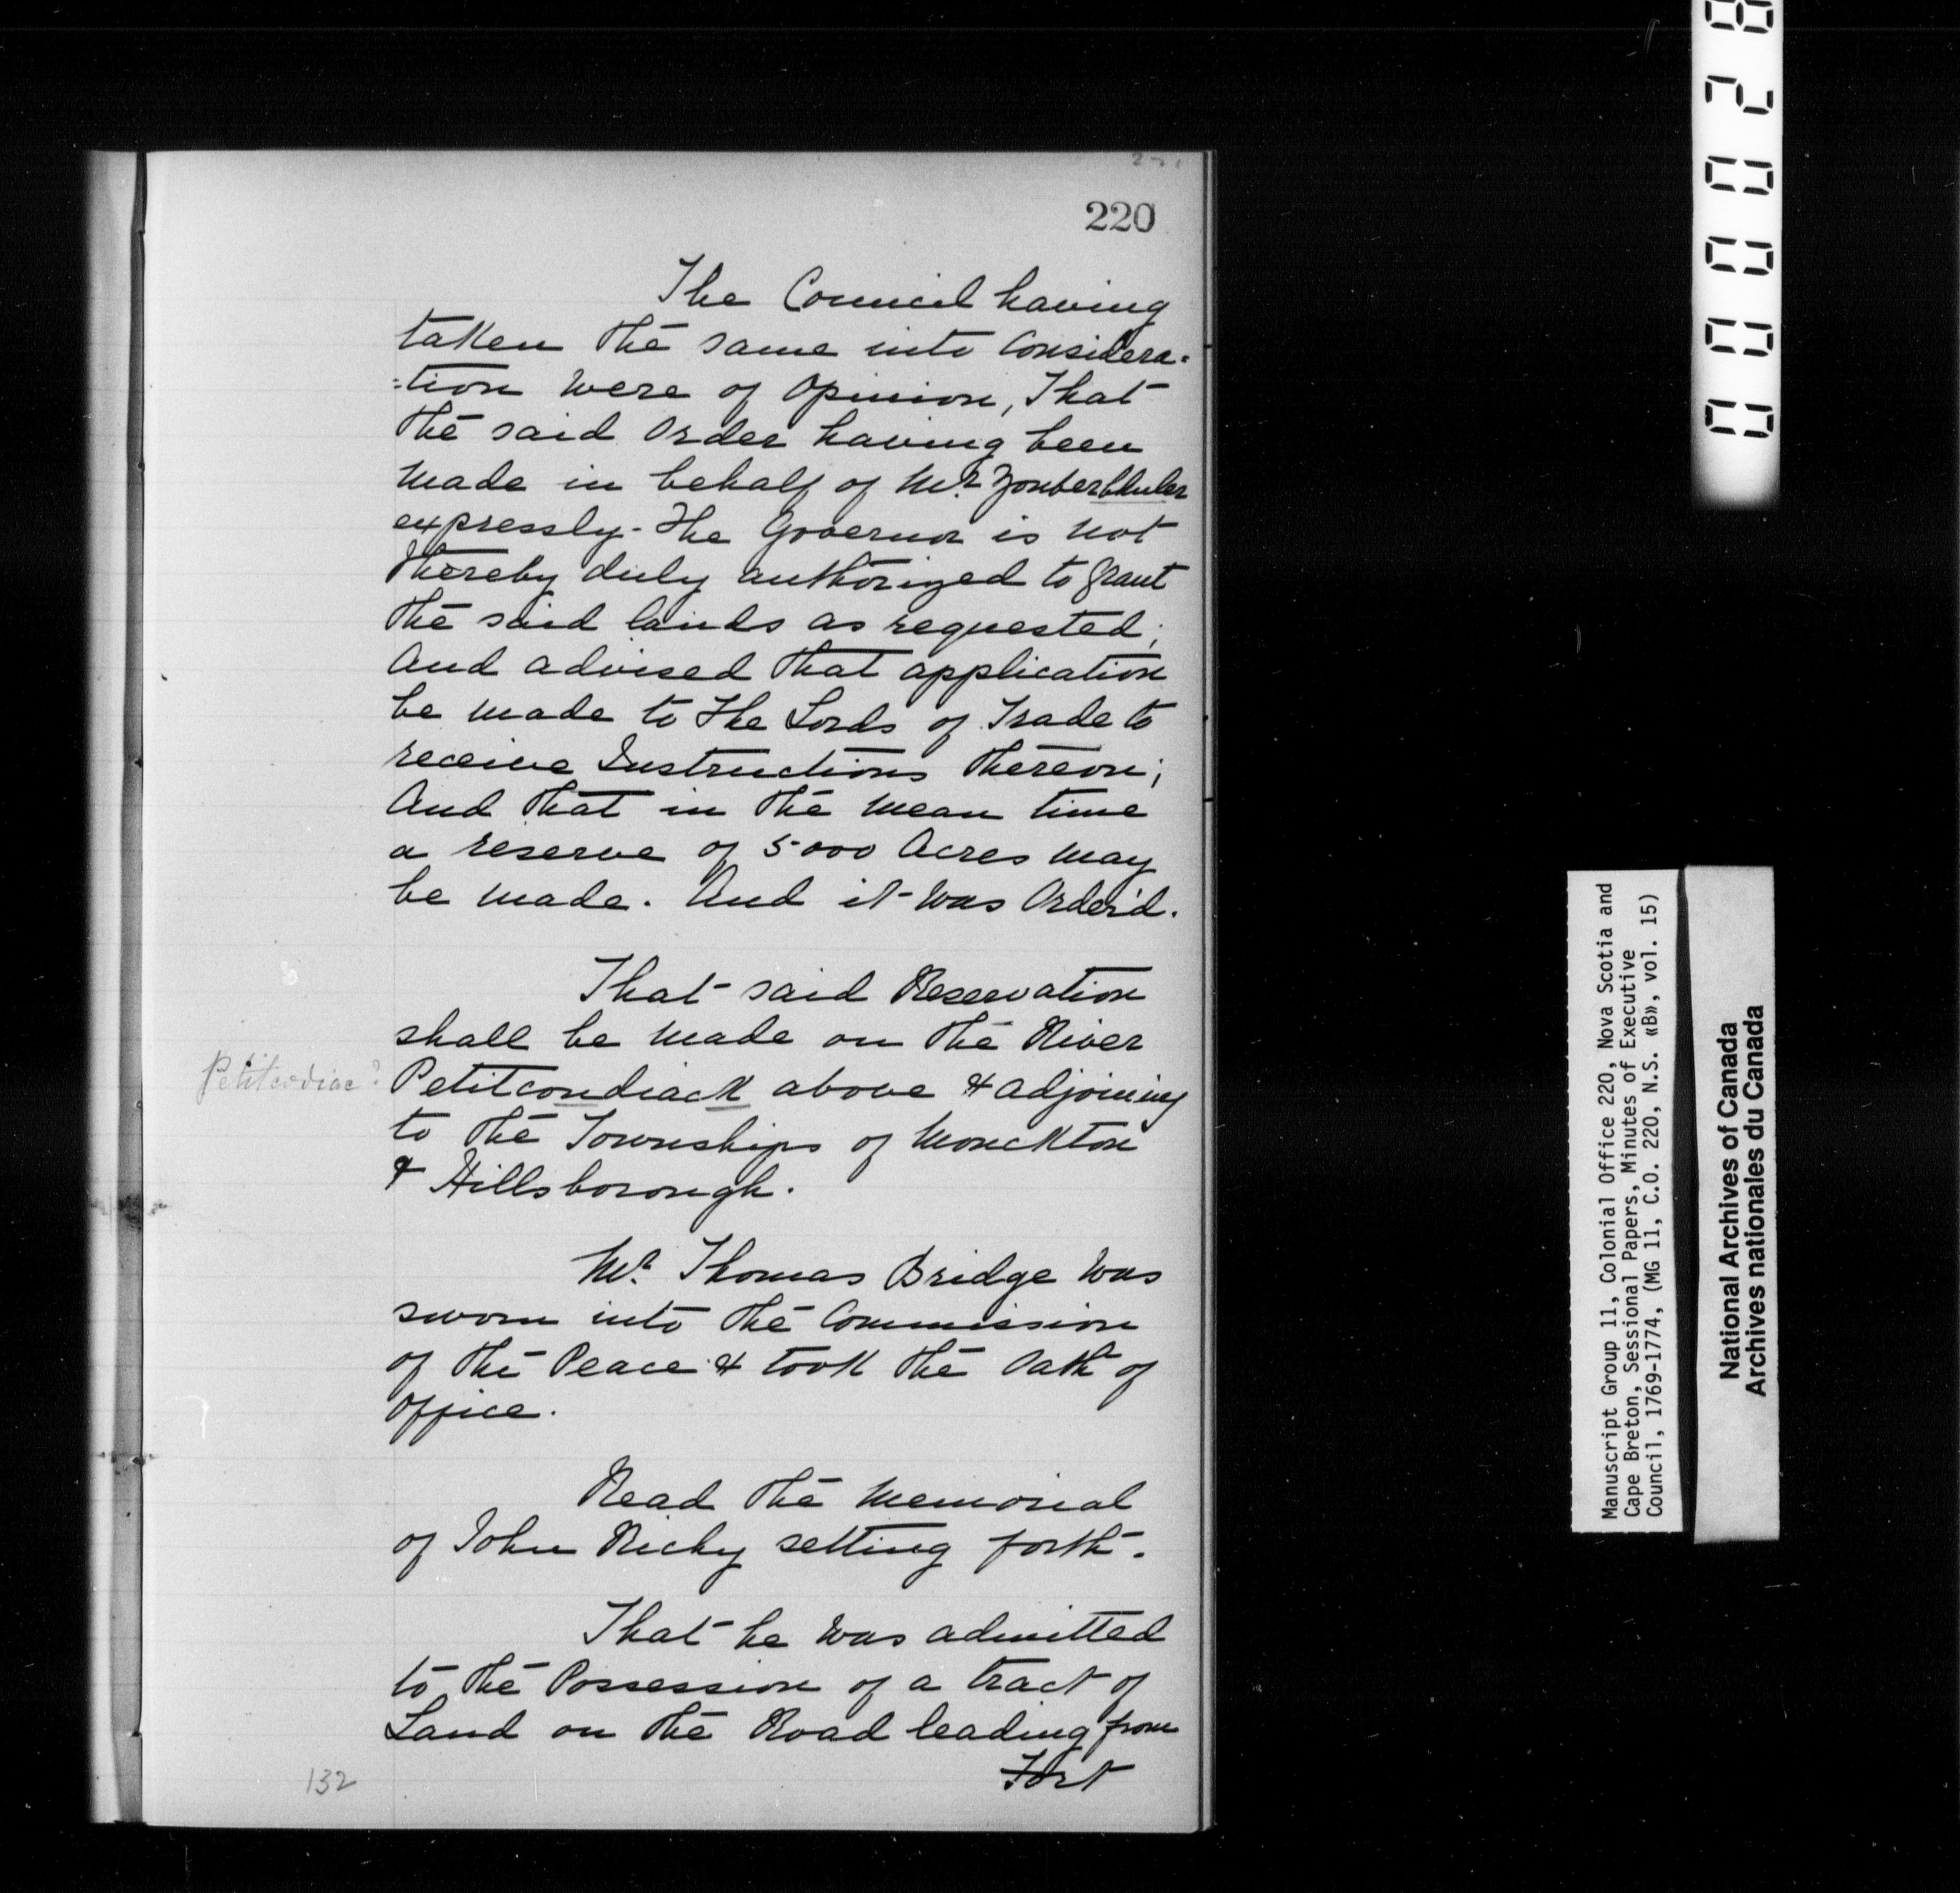 220
The Council having
taken the same into Considera-
:tion were of Opinion, That
the said Order having been
made in behalf of Mr. Zouberbhuler
expressly - The Governor is not
thereby duly authorized to grant
the said lands as requested;
And advised that application
be made to the Lords of Trade to
receive Instructions thereon;
And that in the mean time
a reserve of 5000 Acres may
be made. And it was Order'd.
That said Reservation
shall be made on the River
Petitcodiac?
Petitcondiack above & adjoining
to the Townships of Monckton
& Hillsborough.
Mr. Thomas Bridge was
sworn into the Commission
of the Peace & took the Oath of
Office.
Read the Memorial
of John Richy setting forth.
That he was admitted
to the Possession of a tract of
Land on the Road leading from
Fort
132
00028
Manuscript Group 11, Colonial Office 220, Nova Scotia and
Cape Breton, Sessional Papers, Minutes of Executive
Council, 1769-1774, (MG 11, C.O. 220, N.S. «B», vol. 15)
National Archives of Canada
Archives nationales du Canada